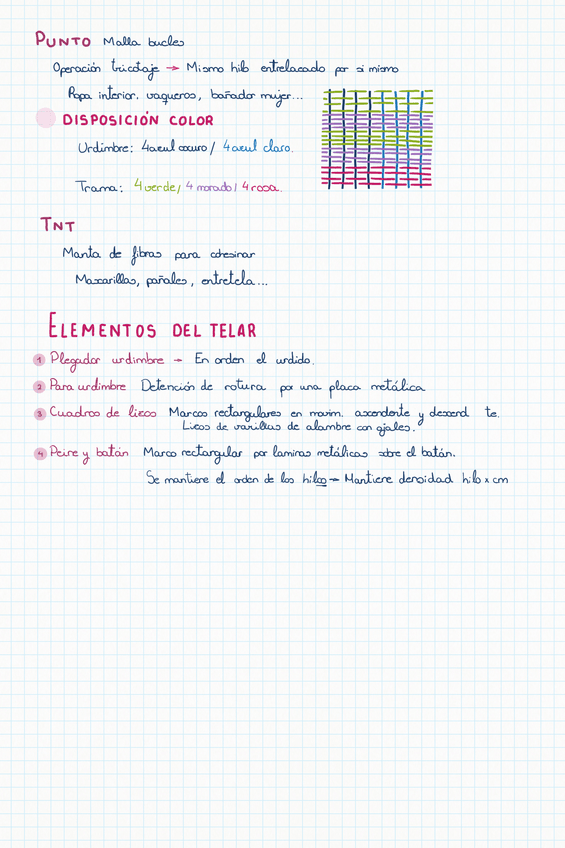 PUNTO Malla bucles
Operación tricotaje → Mismo hilo entrelazado por si mismo
Ropa interior, vaqueros, bañador mujer...
DISPOSICIÓN COLOR
Urdimbre: 4 azul oscuro / 4 azul claro.
Trama: 4 verde / 4 morado / 4 rosa.
TNT
Manta de fibras para cohesinar
Mascarillas, pañales, entretela...
ELEMENTOS DEL TELAR
1 Plegador urdimbre → En orden el urdido.
2 Para urdimbre Detención de rotura por una placa metálica
3 Cuadros de lizos Marcos rectangulares en movim. ascendente y descend te.
Lizos de varillas de alambre con ojales.
4 Peine y batán Marco rectangular por laminas metálicas sobre el batán.
Se mantiene el orden de los hilos → Mantiene densidad hilo x cm